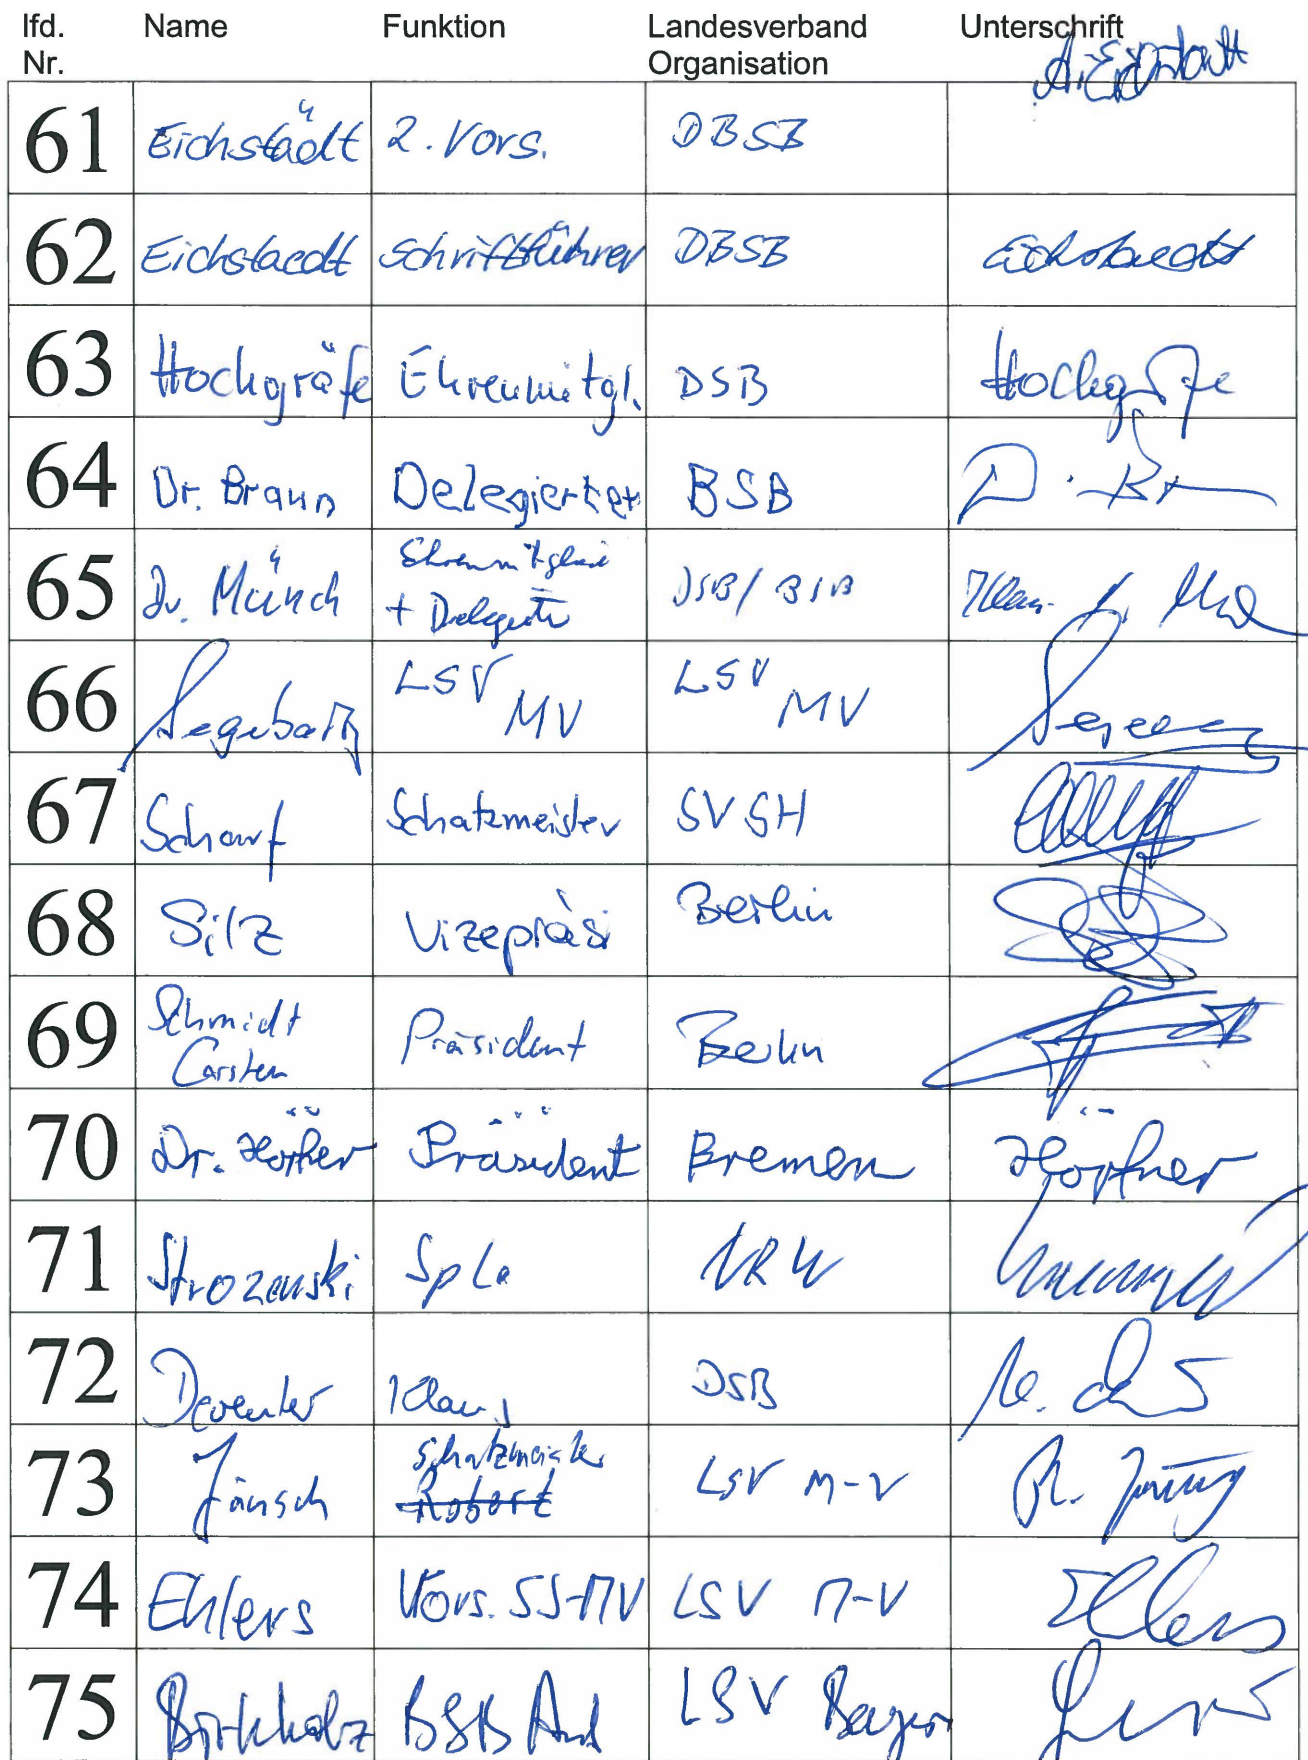 lfd. Nr. Name Funktion Landesverband Organisation Unterschrift
61 Eichstädt 2. Vors. DBSB
62 Eichstaedt Schriftführer DBSB Eichstaedt
63 Hochgräfe Ehrenmitgl. DSB Hochgräfe
64 Dr. Braun Delegierter BSB
65 Dr. Münch Ehrenmitglied + Delegierter DSB/BSB
66 LSV MV LSV MV
67 Scharf Schatzmeister SVSH
68 Silz Vizepräsi Berlin
69 Schmidt Carsten Präsident Berlin
70 Dr. Höpfner Präsident Bremen Höpfner
71 SpLe NRW
72 Deventer Klaus DSB
73 Jänsch Schatzmeister Robert LSV M-V
74 Ehlers Vors. SJ-MV LSV M-V Ehlers
75 Birkholz BSB LSV Bayern